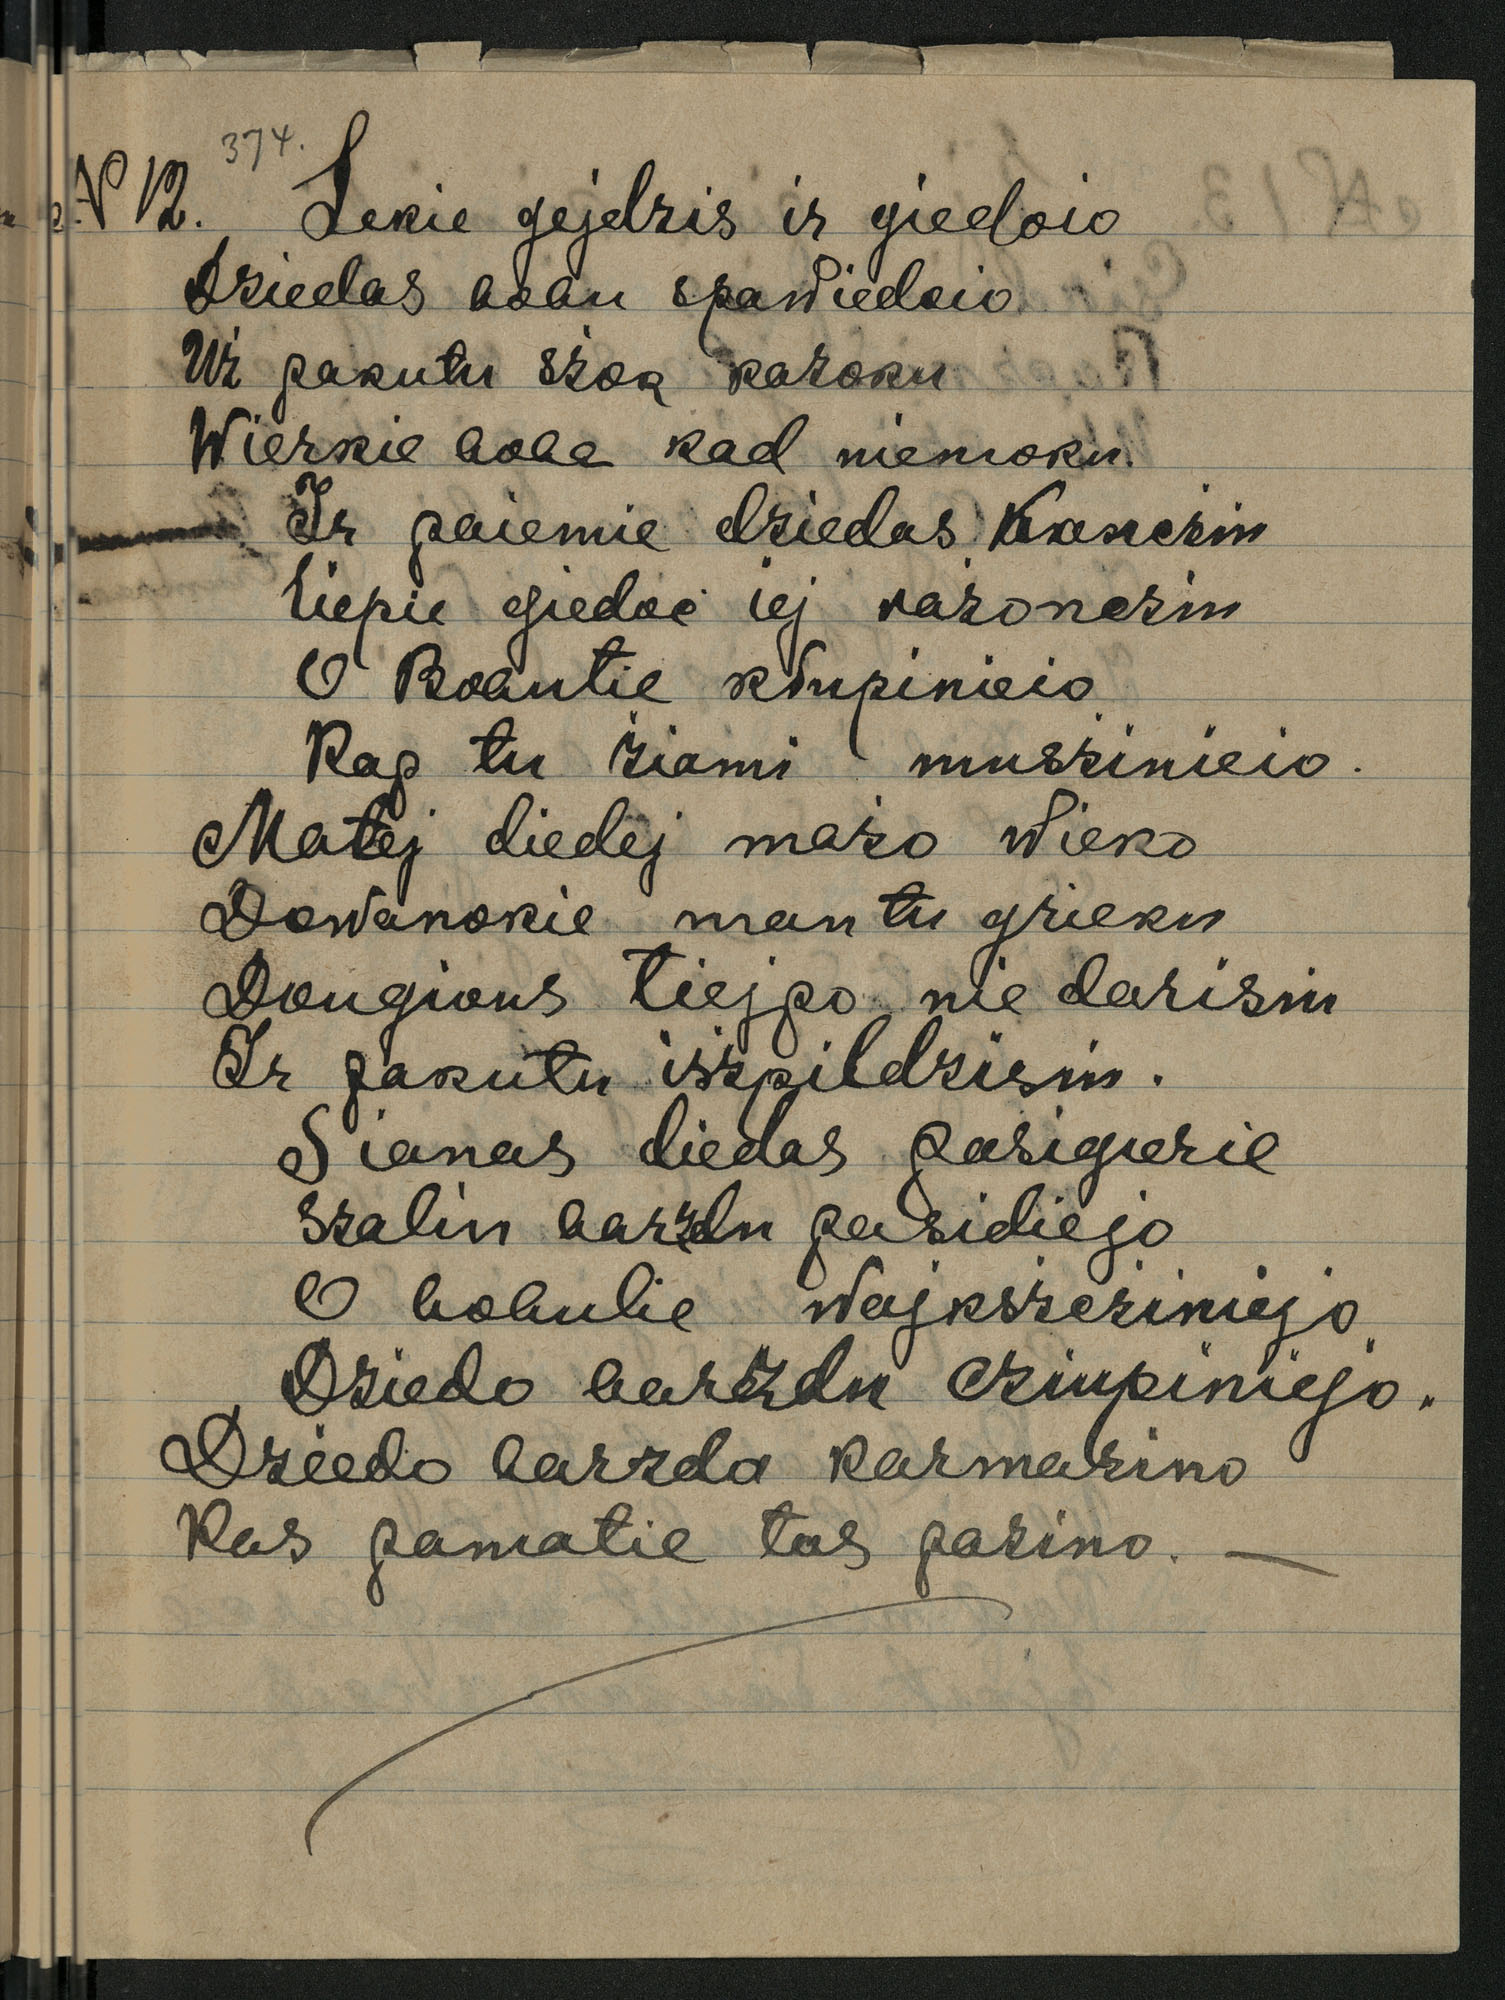 374.
№ 12. Lekie gejdzis ir giedoio
Dziedas bobu spawiedoio
Uż pakutu szok kazoku
Wierkie boba kad niemoku.
Ir paiemie dziedas kancziu
liepie giedoć iej rażoncziu
O Bobutie kłupinieio
Kap tu żiami muszinieio.
Matej diedej mażo wieko
Dowanokie man tu grieku
Dougious tiejpo nie darisiu
Ir pakutu iszpildzisiu.
Sianas diedas pasigierie
szalin barzdu pasidiejo
O bobulie wajkszcziniejo
Dziedo barzdu cziupiniejo.
Dziedo barzda karmazino
Kas pamatie tas pażino. —